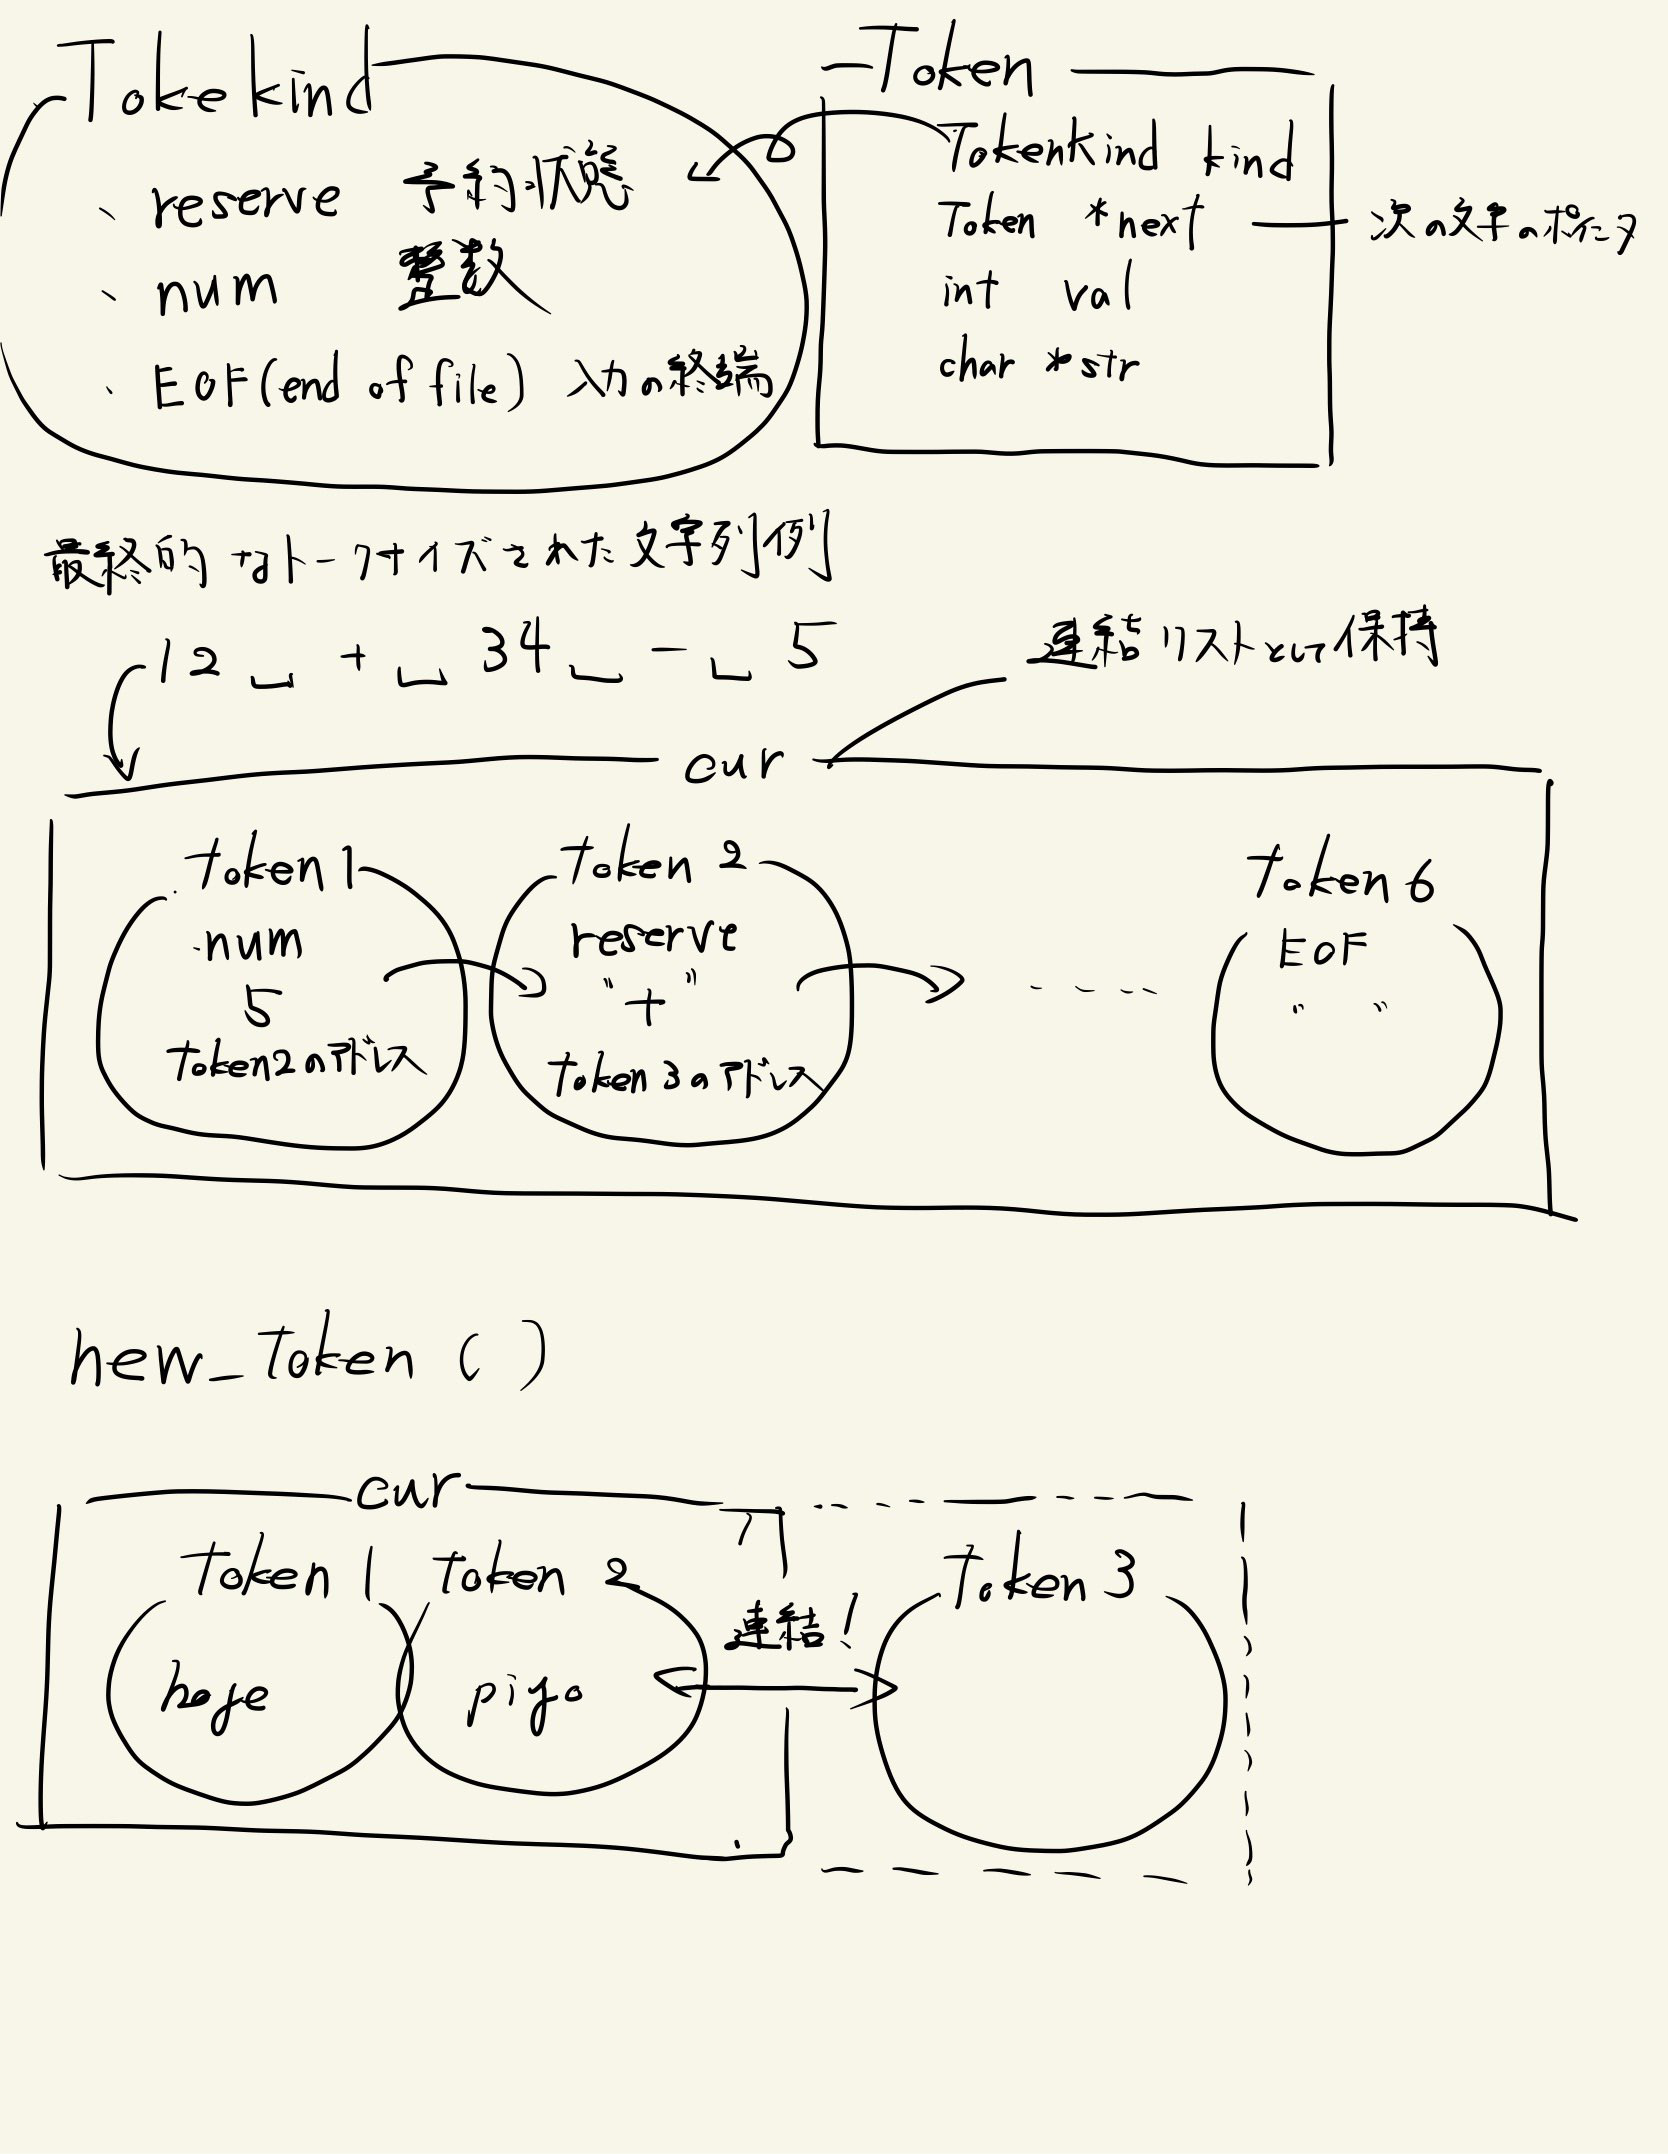 Tokekind
、reserve 予約状態
、num 整数
、EOF(end of file) 入力の終端
Token
Tokenkind kind
Token *next
次の文字のポインタ
int val
char *str
最終的なトークナイズされた文字列例
12␣+␣34␣-␣5
連結リストとして保持
cur
token 1
num
5
token2のアドレス
token 2
reserve
"+"
token 3のアドレス
token 6
EOF
" "
new_token ( )
cur
token 1
hoge
token 2
piyo
連結!
token 3